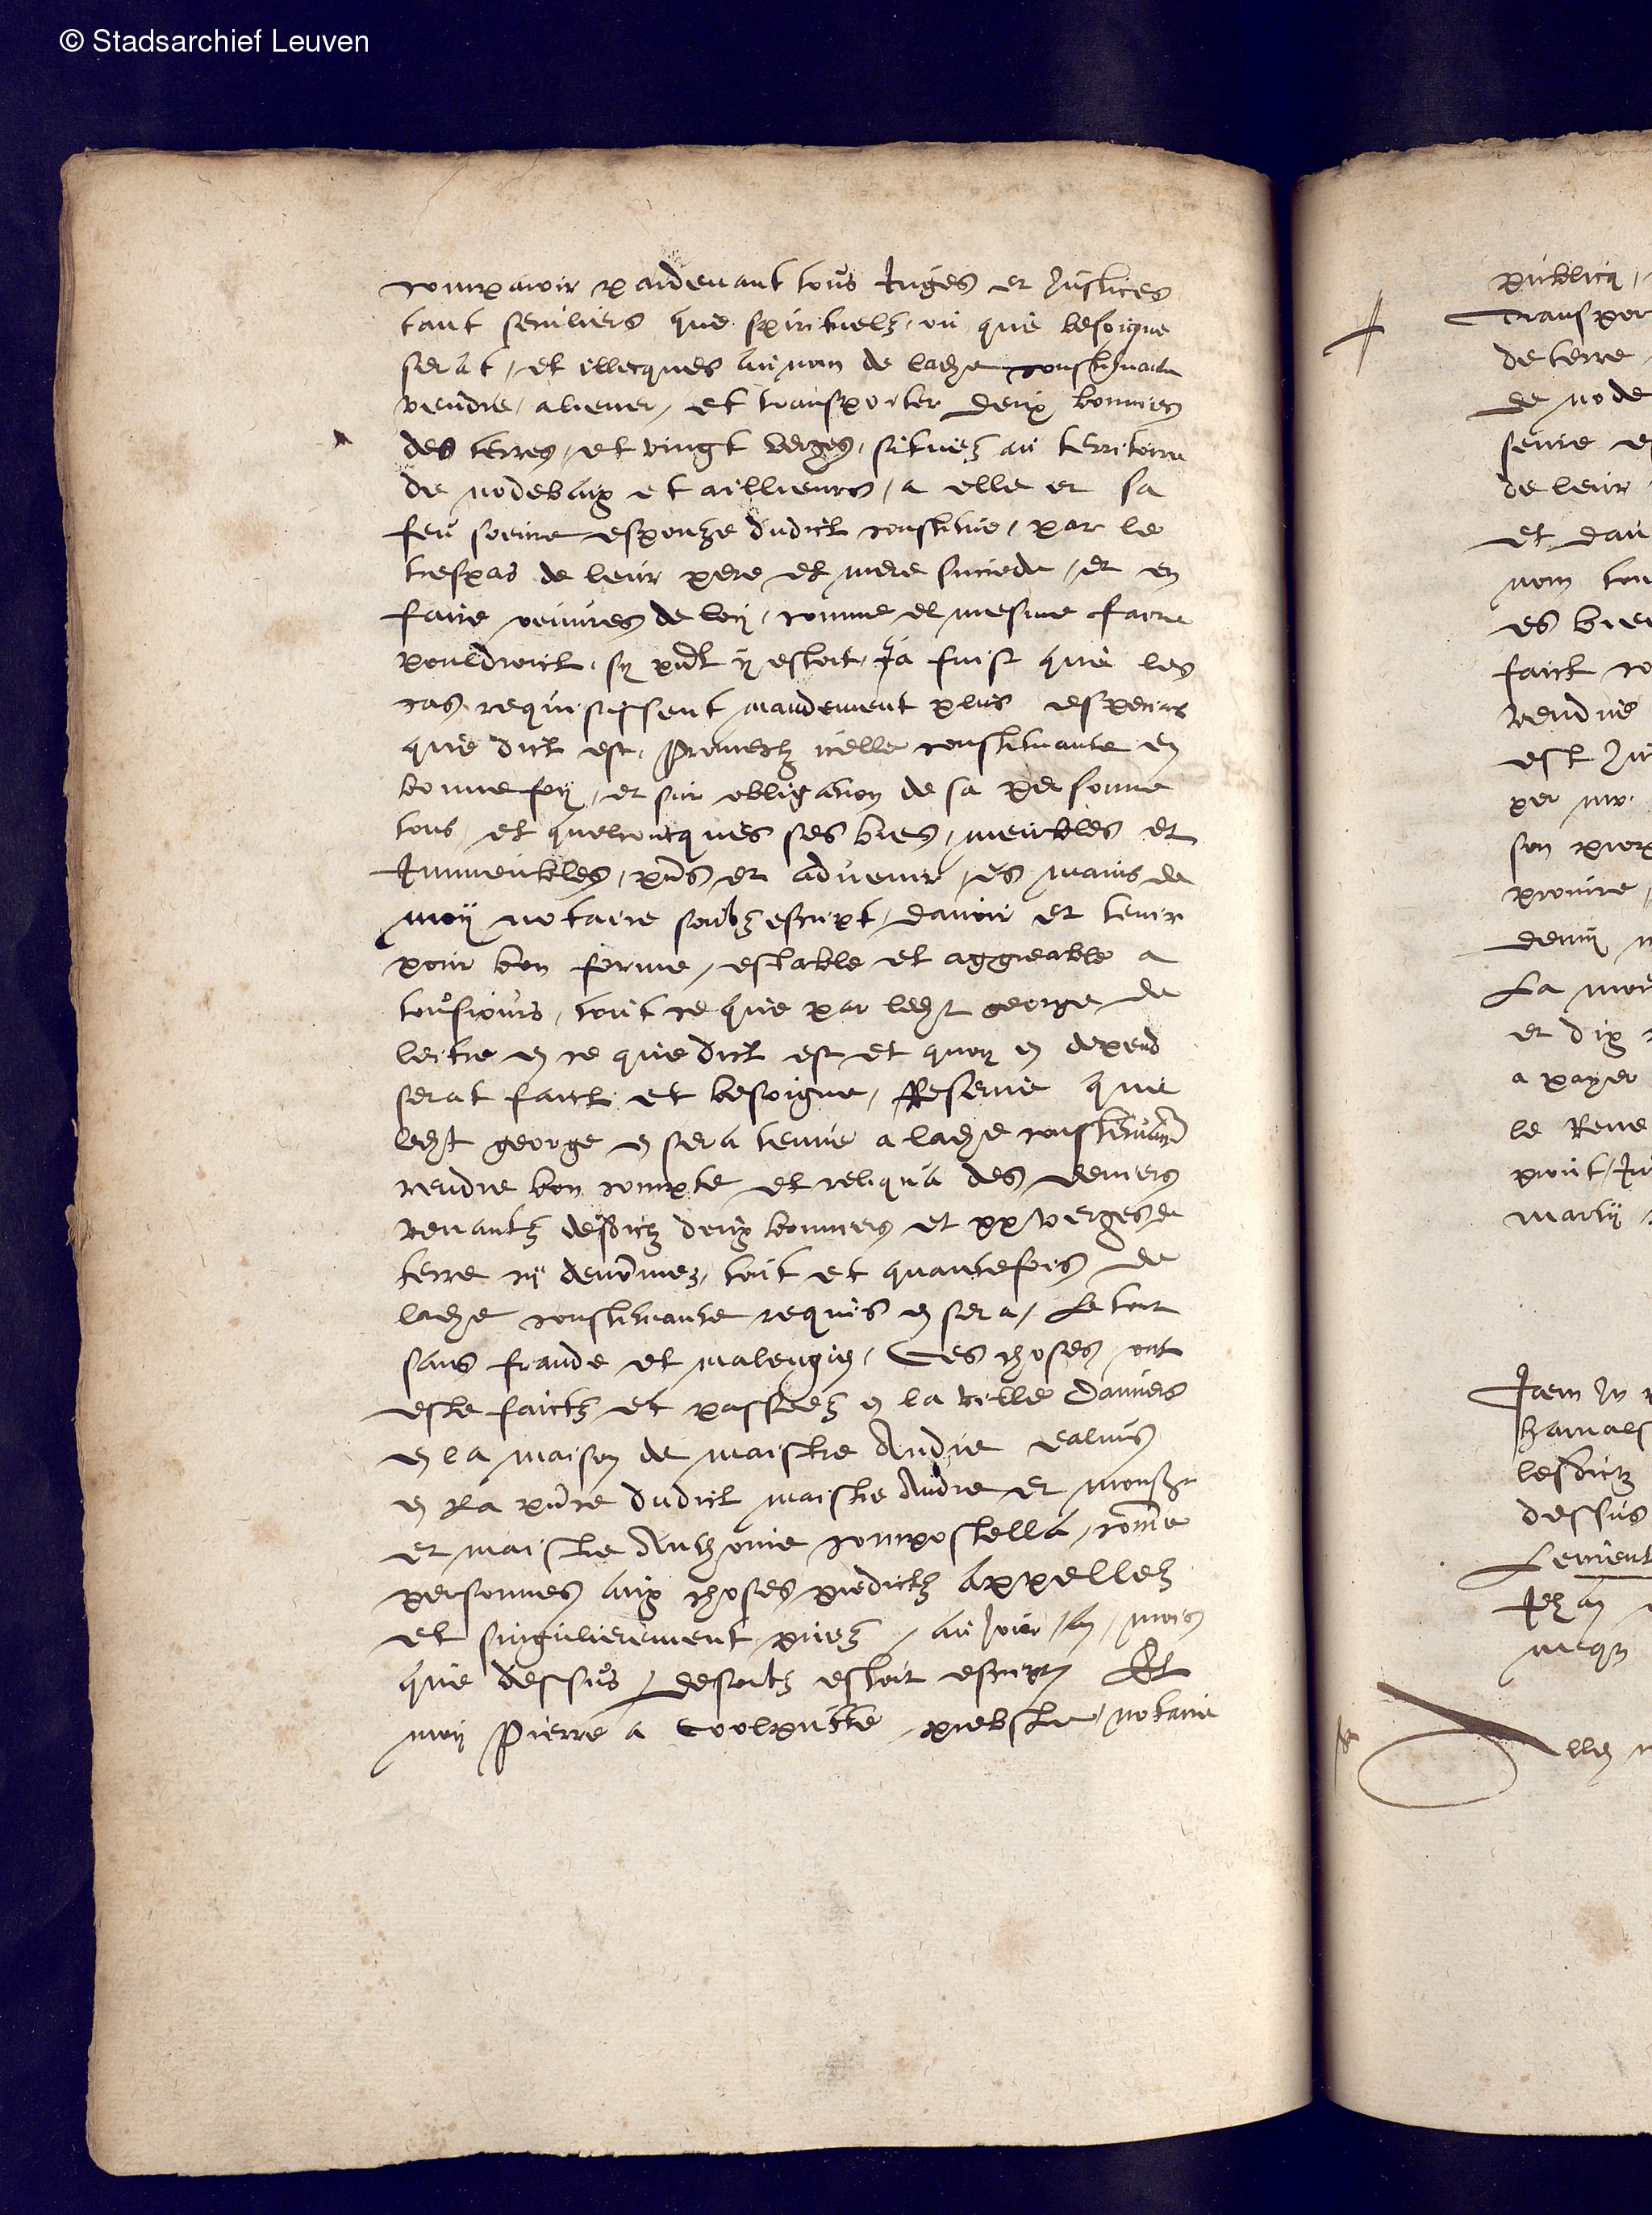 © Stadsarchief Leuven
comparoir pardevant tous Juges et Justices
tant seculiers que spirituelz, ou que besoigne
serat, et illecques au nom de ladte constituante
vendre, aliener, et transporter deux bonniers
des terres, et vingt verges, situez au territoire
de nodebaix et aillieurs, a elle et sa
feu soeure espouze dudict constitue, par le
trespas de leur pere et mere succede, et en
faire oeuvres de loy, comme el mesme faire
pouldroict, sy pnt y estoit, Ja fuist que les
cas requisissent mandement plus especial
que dict est, Promectz icelle constituante en
bonne foy, et sur obligation de sa personne
tous et quelconcques ses biens, meubles et
Immeubles, pns et advenir, es mains de
moy notaire soubz escript, davoir et tenir
pour bon ferme, estable et aggreable a
tousiours, tout ce que par ledt george de
leitre en ce que dict est et quoy en depend
serat faict et besoigne, Reserve que
ledt george en sera tenue a ladte constituante
rendre bon compte et reliqua des deniers
venantz desdictz deux bonniers et xx verges de
terre cy denommez, tout et quantesfois de
ladte constituante requis en sera, Le tout
sans fraude et malengien, Ces choses ont
este faictz et passeez en la ville Danvers
en la maison de maistre Andre
en La pnce dudict maistre Andre et monsr
et maistre Anthoine compostella, come
personnes aux choses predictz appellez
et singulierement priez, au Jour, an, mois
que dessus, desoubz estoit escript Et
moy Pierre a Coolputte prebstre, notaire
publicq,
Transpor
de terre
de node
seure
de leur
et dau
nom tou
es bien
faict
vendue
est
per
son
demy
La
et dix
a payer
le Reve
Item In
lesdictz
dessus
Jehan